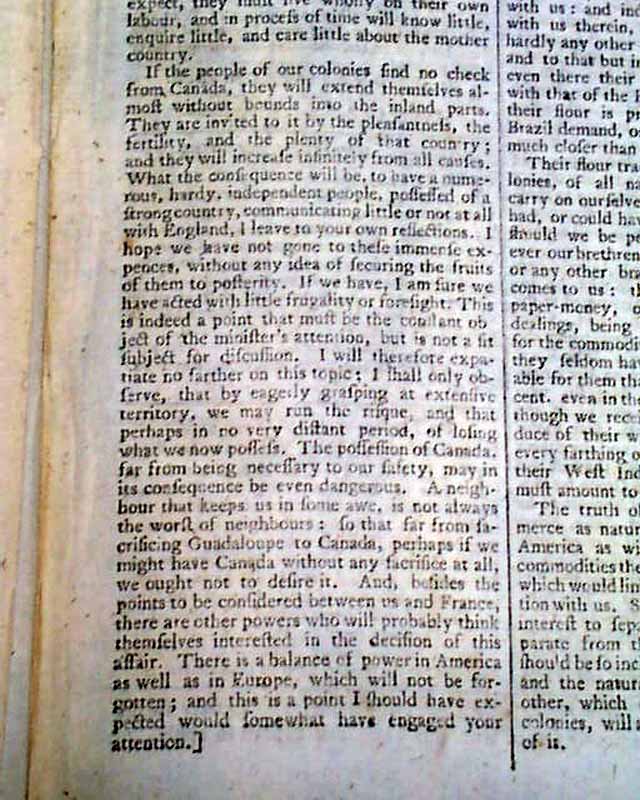 expect, they must live wholly on their own
labour, and in proceſs of time will know little,
enquire little, and care little about the mother
country.
If the people of our colonies find no check
from Canada, they will extend themſelves al-
moſt without bounds into the inland parts.
They are invited to it by the pleaſantneſs, the
fertility, and the plenty of that country;
and they will increaſe infinitely from all cauſes.
What the conſequence will be, to have a nume-
rous, hardy, independent people, poſſeſſed of a
ſtrong country, communicating little or not at all
with England, I leave to your own reflections. I
hope we have not gone to theſe immenſe ex-
pences, without any idea of ſecuring the fruits
of them to poſterity. If we have, I am ſure we
have acted with little frugality or foreſight. This
is indeed a point that muſt be the conſtant ob
ject of the miniſter's attention, but is not a fit
ſubject for diſcuſſion. I will therefore expa-
tiate no farther on this topic; I ſhall only ob-
ſerve, that by eagerly graſping at extenſive
territory, we may run the riſque, and that
perhaps in no very diſtant period, of loſing
what we now poſſeſs. The poſſeſſion of Canada,
far from being neceſſary to our ſafety, may in
its conſequence be even dangerous. A neigh-
bour that keeps us in ſome awe, is not always
the worſt of neighbours: ſo that far from ſa-
crificing Guadaloupe to Canada, perhaps if we
might have Canada without any ſacrifice at all,
we ought not to deſire it. And, beſides the
points to be conſidered between us and France,
there are other powers who will probably think
themſelves intereſted in the deciſion of this
affair. There is a balance of power in America
as well as in Europe, which will not be for-
gotten; and this is a point I ſhould have ex-
pected would ſomewhat have engaged your
attention.]
with us: and in
with us therein,
hardly any other
and to that but in
even there their
with that of the
their flour is pr
Brazil demand, o
much cloſer than
Their flour tra
lonies, of all na
carry on ourſelve
had, or could ha
ſhould we be pe
ever our brethren
or any other bra
comes to us: th
paper-money, o
dealings, being
for the commodit
they ſeldom hav
able for them th
cent. even in the
though we rece
duce of their w
every farthing o
their Weſt Ind
muſt amount to
The truth of
merce as natur
America as wi
commodities the
which would lin
tion with us. S
intereſt to ſepa
parate from th
ſhould be ſo inc
and the natur
other, which
colonies, will a
of it.